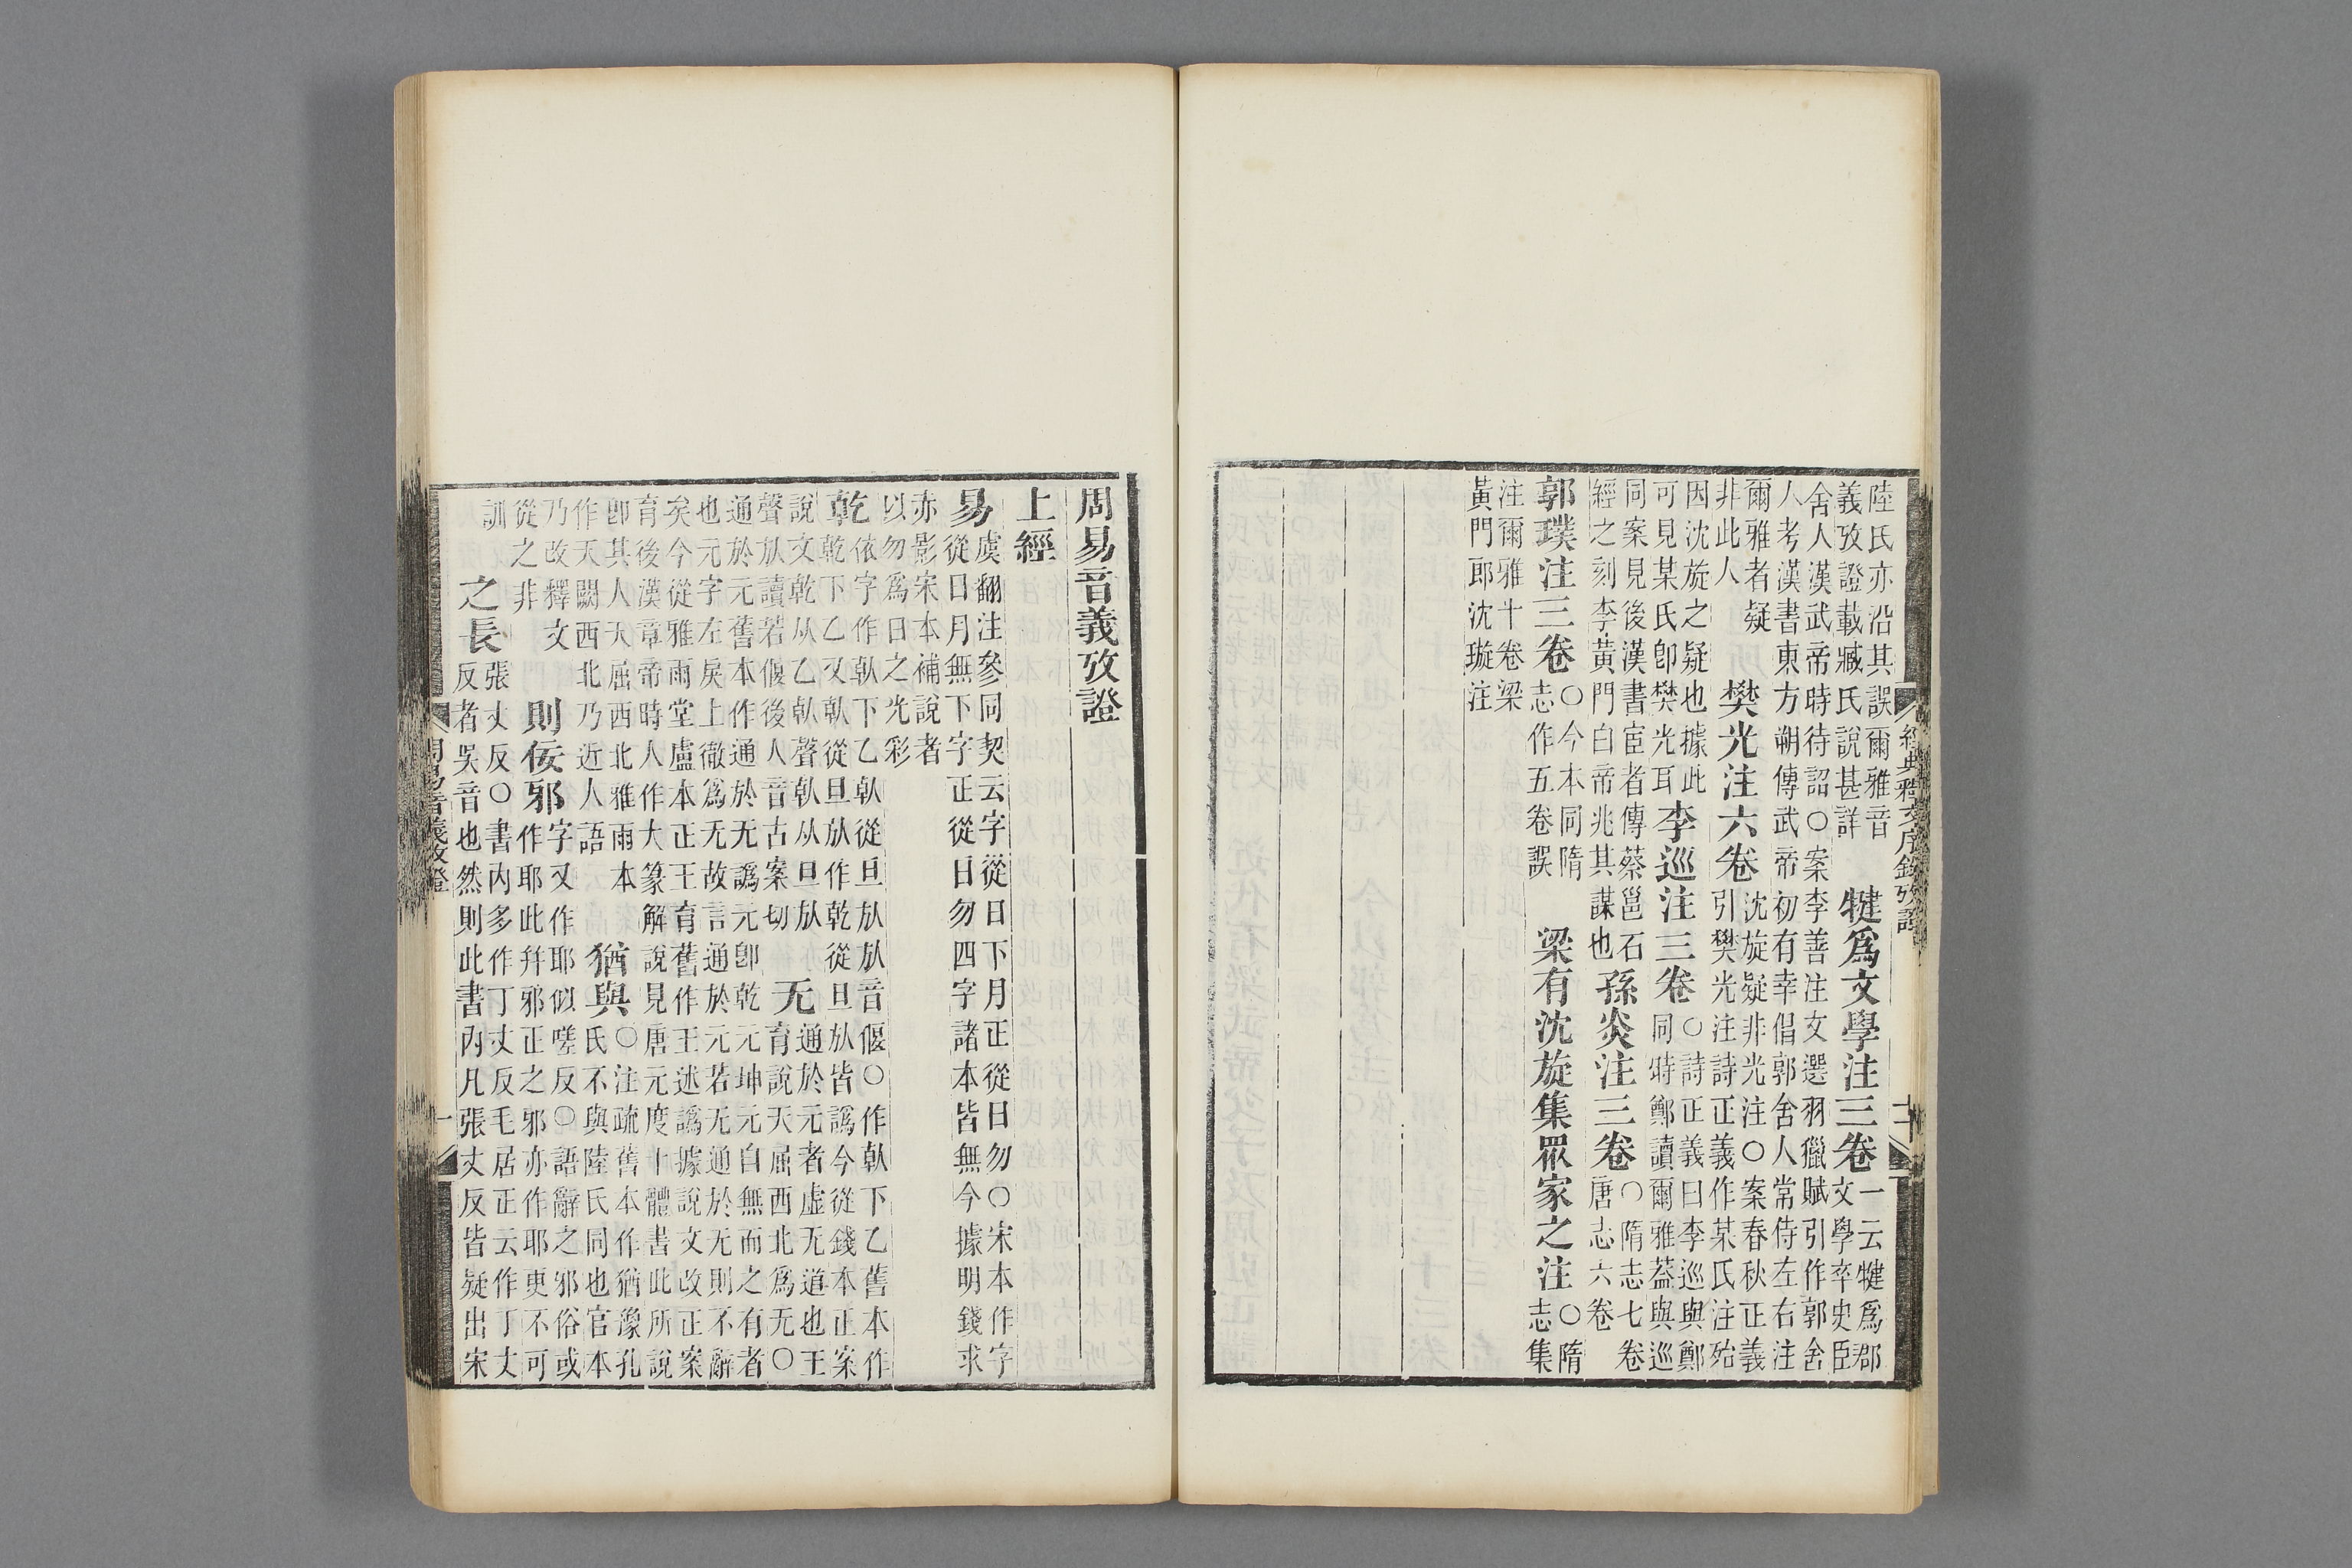 經典釋文序錄攷證
陸氏亦沿其誤爾雅音
義攷證載臧氏說甚詳
犍爲文學注三卷
一云犍爲郡
文學卒史臣
舍人漢武帝時待詔○案李善注文選羽獵賦引作郭舍
人考漢書東方朔傳武帝初有幸倡郭舍人常侍左右注
爾雅者疑
非此人
樊光注六卷
沈旋疑非光注○案春秋正義
引樊光注詩正義作某氏注殆
因沈旋之疑也據此
可見某氏卽樊光耳
李巡注三卷
○詩正義曰李巡與鄭
同時鄭讀爾雅葢與巡
同案見後漢書宦者傳蔡邕石
經之刻李黃門白帝兆其謀也
孫炎注三卷
○隋志七卷
唐志六卷
郭璞注三卷
○今本同隋
志作五卷誤
梁有沈旋集眾家之注
○隋
志集
注爾雅十卷梁
黃門郎沈璇注
周易音義攷證
上經
易
虞翻注參同契云字從日下月正從日勿○宋本作字
從日月無下字正從日勿四字諸本皆無今據明錢求
亦影宋本補說者
以勿爲日之光彩
乾
依字作倝下乙倝從旦㫃㫃音偃○作倝下乙舊本作
乾下乙又倝從旦㫃作乾從旦㫃皆譌今從錢本正案
說文乾从乙倝聲倝从旦㫃
聲㫃讀若偃後人音古案切
无
通於元者虛无道也王
育說天屈西北爲无○
通於元元舊本作通於无譌元卽乾元坤元自無而之有者
也元字左戾上徹爲无故言通於元若无通於无則不辭
矣今從雅雨堂盧本正王育舊作王述譌據說文改正案
育後漢章帝時人作大篆解說見唐元度十體書此所說
卽其人天屈西北雅雨本
作天闕西北乃近人語
猶與
○注疏舊本作猶豫孔
氏不與陸氏同也官本
乃改釋文
從之非
則佞邪
字又作耶似嗟反○語辭之邪俗或
作耶此幷邪正之邪亦作耶更不可
訓
之長
張丈反○書内多作丁丈反毛居正云作丁丈
反者吳音也然則此書内凡張丈反皆疑出宋
周易音義攷證
一